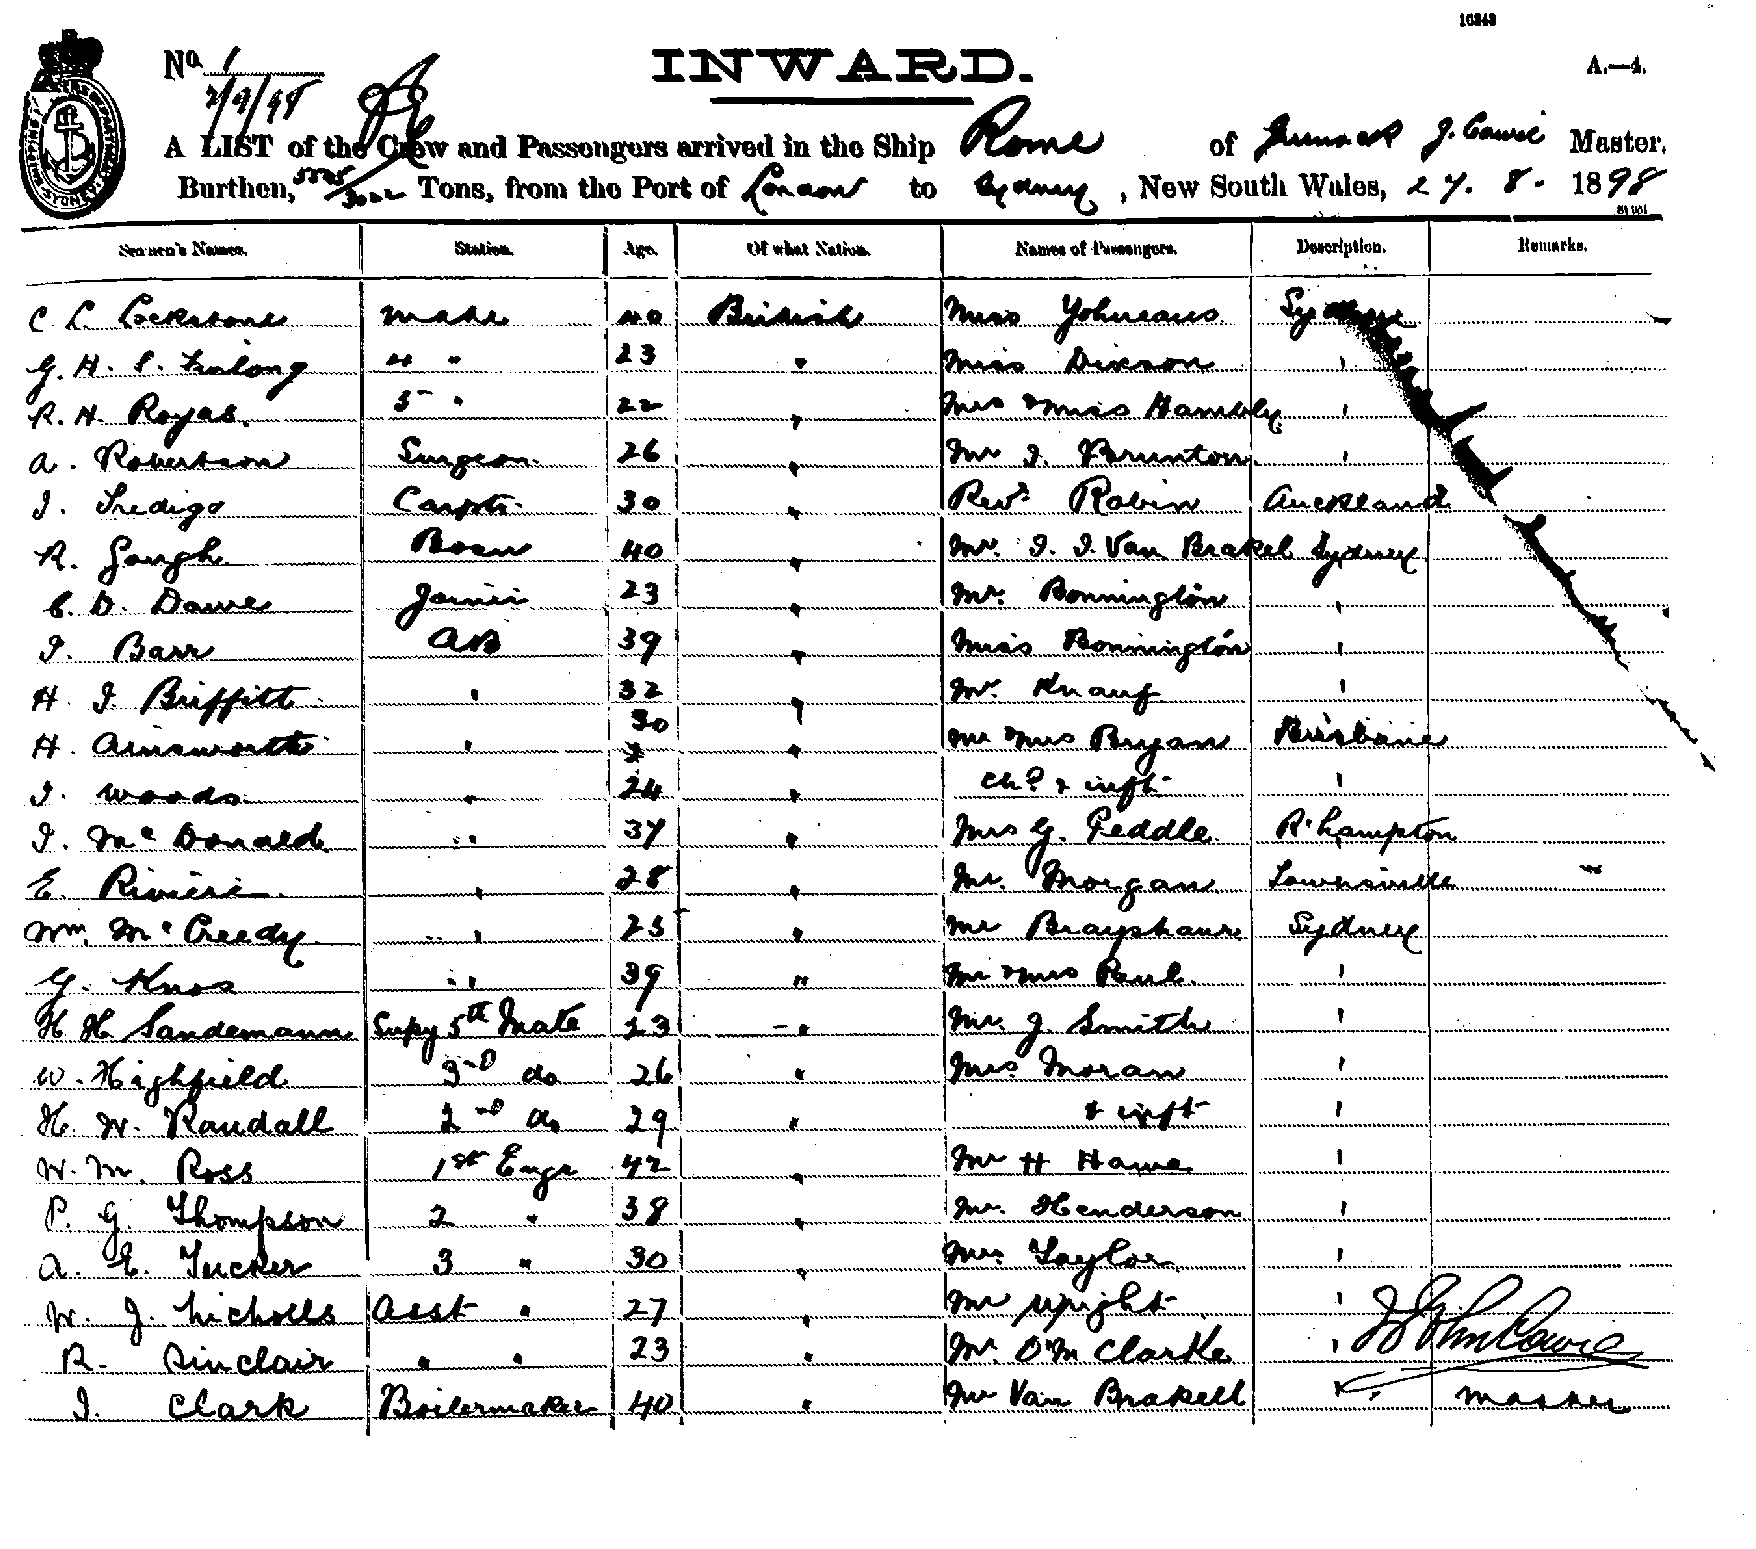 16343
No. 1
INWARD.
A.—4.
2/9/98
A LIST of the Crew and Passengers arrived in the Ship Rome of J. Cawie Master,
Burthen, 5525/3022 Tons, from the Port of London to Sydney, New South Wales, 27. 8. 1898
Seamen's Names. Station. Age. Of what Nation. Names of Passengers. Description. Remarks.
C L Lockstone mate 40 British Miss Sydney
G. H. S. Furlong 4 " 23 " Miss Dixson "
R. H. Royas. 5 " 22 " Mrs & Miss Hambly "
A. Robertson Surgeon 26 " Mr J. Brunton "
J. Tredigo Carptr. 30 " Revd. Robin Auckland
R. Gough Bosn 40 " Mr. J. J. Van Brakel Sydney
C. D. Dawe Joiner 23 " Mr. Bonnington "
J. Barr AB 39 " Miss Bonnington "
H. J. Briffitt " 32 " Mr. Knauf "
H. Ainsworth " 30 " Mr & Mrs Bryan Brisbane
J. Woods " 24 " chd & inft "
J. McDonald " 37 " Mrs G. Peddle R'hampton
E. Riviere " 28 " Mr. Morgan Townsville
Wm. McCreedy " 23 " Mr Brayshaw Sydney
G. Knos " 39 " Mr & Mrs Paul. "
H H Sandemann Supy 5th Mate 23 " Mr. J Smith "
W. Highfield 3rd do 26 " Mrs. Moran "
H. W. Randall 2nd do 29 " & inft "
W. M. Ross 1st Engr 42 " Mr H Hawe "
P. G. Thompson 2 " 38 " Mr. Henderson "
A. E. Tucker 3 " 30 " Mrs. Taylor "
W. J. Nicholls Asst " 27 " Mr Wright "
R. Sinclair " " 23 " Mr. O'M Clarke "
J. Clark Boilermaker 40 " Mr Van Brakell "
Master